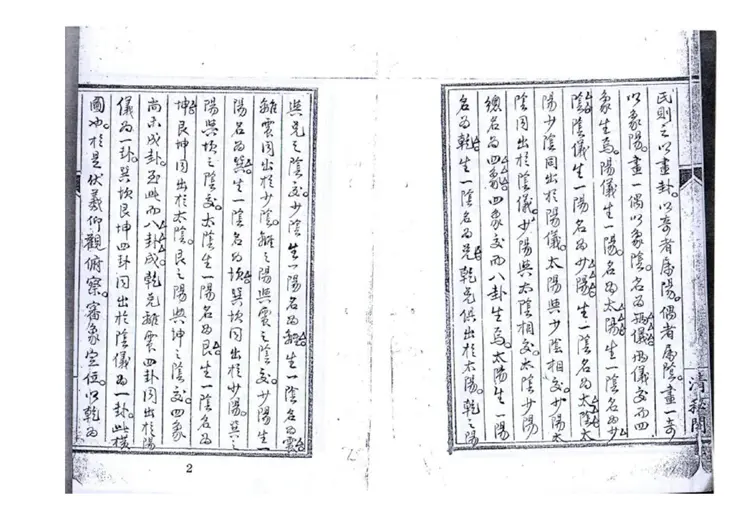 氏則之以畫卦。以奇者屬陽。偶者屬陰。畫一奇
以象陽。畫一偶以象陰。名為兩儀。兩儀交而四
象生焉。陽儀生一陽。名為太陽。生一陰名為少
陰。陰儀生一陽名為少陽。生一陰名為太陰。太
陽少陰同出於陽儀。太陽與少陰相交。少陽太
陰同出於陰儀。少陽與太陰相交。陰陽少陽
總名為四象。四象交而八卦生焉。太陽生一陽
名為乾。生一陰名為兌。乾兌俱出於太陽。乾之陽
與兌之陰交。少陰生一陽名為離。生一陰名為震
離震同出於少陰。離之陽與震之陰交。少陽生一
陽名為巽。生一陰名為坎。巽坎同出於少陽。巽之
陽與坎之陰交。太陰生一陽名為艮。生一陰名為
坤。艮坤同出於太陰。艮之陽與坤之陰交。四象
尚未成卦。至此而八卦成。乾兌離震四卦同出於陽
儀為一卦。巽坎艮坤四卦同出於陰儀為一卦。此橫
圖也。於是伏羲仰觀俯察。審象定位。以乾為
清秘閣
2